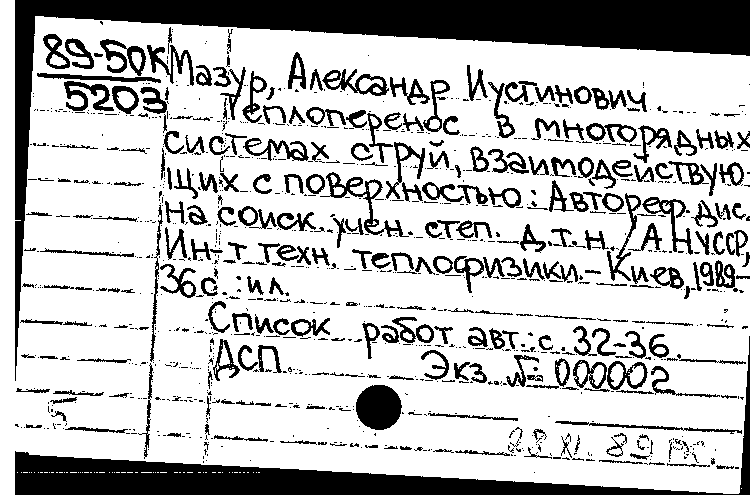 89-50К
5203
Мазур, Александр Иустинович.
Теплоперенос в многорядных
системах струй, взаимодействую-
щих с поверхностью: Автореф. дис.
на соиск. учен. степ. д.т.н. / АН УССР,
Ин-т техн. теплофизики.- Киев, 1989-
36с. : ил.
Список работ авт.: с. 32-36.
ДСП. Экз. № 000002
5
23 XI. 89